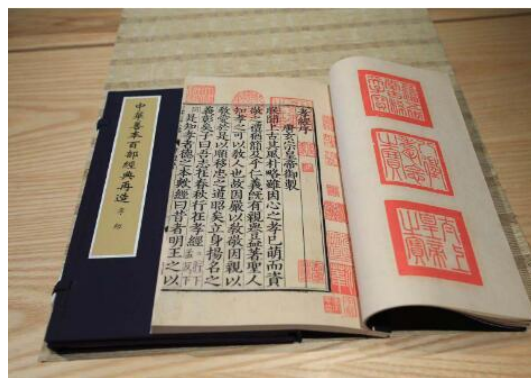 中華善本百部經典再造
孝經
孝經序
唐玄宗皇帝御製
朕聞上古其風朴略雖因心之孝已萌而資
敬之禮猶簡及乎仁義既有親譽益著聖人
知孝之可以教人也故因嚴以教敬因親以
教愛於是以順移忠之道昭矣立身揚名之
義彰矣子曰吾志在春秋行在孝經
是知孝者德之本歟經曰昔者明王之以
八徵耄念之寶
太上皇帝之寶